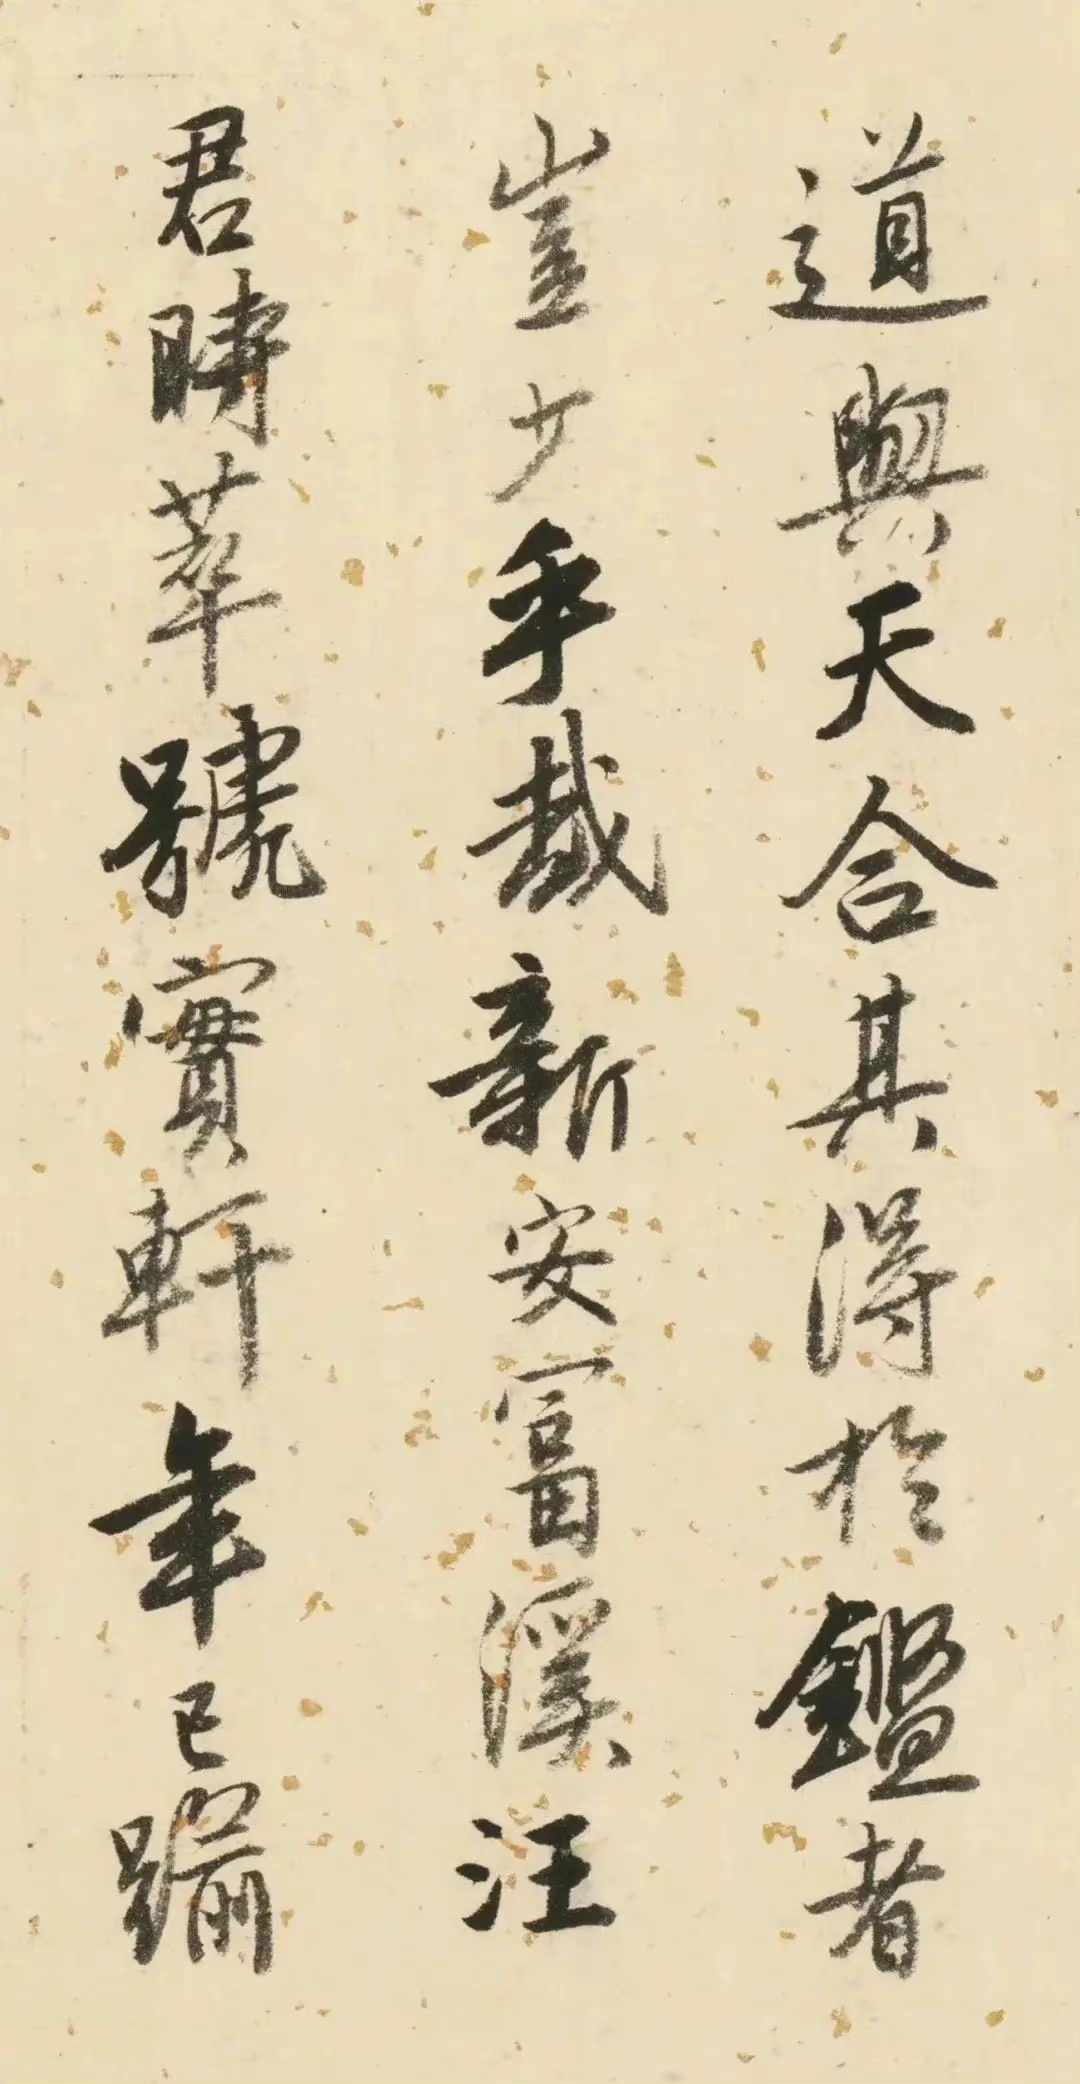 道與天合其得於鑑者
豈少乎哉新安富溪汪
君時萃號實軒年已踰